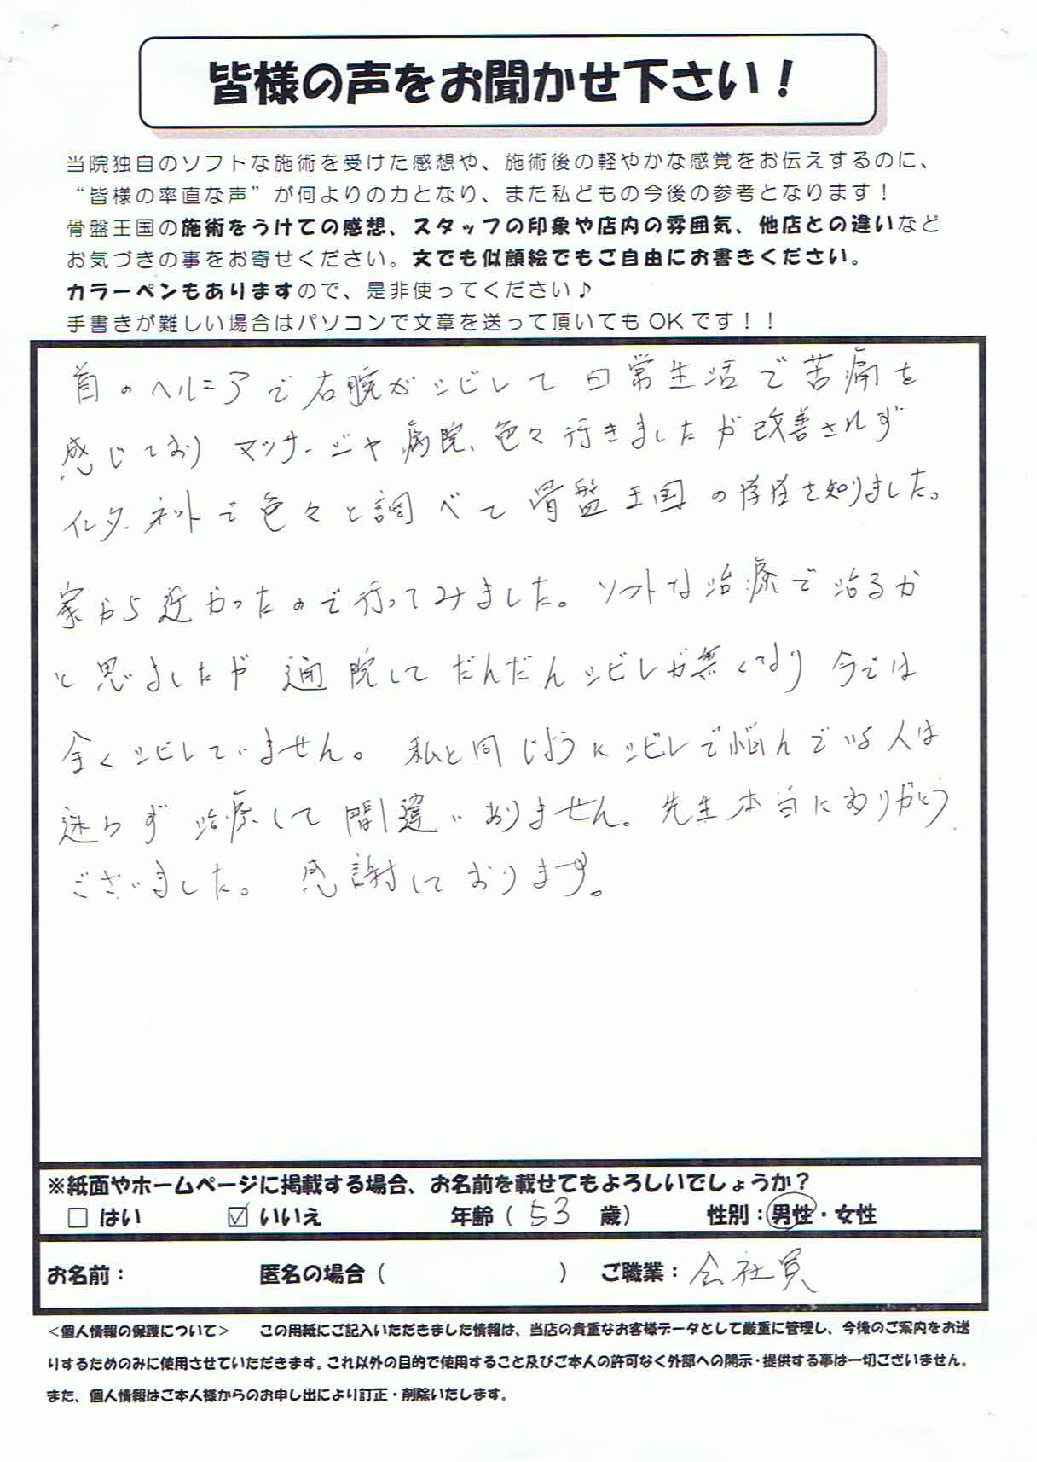 皆様の声をお聞かせ下さい！
当院独自のソフトな施術を受けた感想や、施術後の軽やかな感覚をお伝えするのに、
“皆様の率直な声”が何よりの力となり、また私どもの今後の参考となります！
骨盤王国の施術をうけての感想、スタッフの印象や店内の雰囲気、他店との違いなど
お気づきの事をお寄せください。文でも似顔絵でもご自由にお書きください。
カラーペンもありますので、是非使ってください♪
手書きが難しい場合はパソコンで文章を送って頂いてもOKです！！
首のヘルニアで右腕がシビレて日常生活で苦痛を
感じており マッサージや病院、色々行きましたが改善されず
インターネットで色々と調べて骨盤王国の存在を知りました。
家から近かったので行ってみました。ソフトな治療で治るか
と思ましたが 通院して だんだんシビレが無くなり 今では
全くシビレていません。 私と同じようにシビレで悩んでいる人は
迷わず 治療して 間違いありません。先生本当にありがとう
ございました。 感謝しております。
※紙面やホームページに掲載する場合、お名前を載せてもよろしいでしょうか？
□ はい ☑ いいえ 年齢（ 53 歳） 性別：男性・女性
お名前： 匿名の場合（ ） ご職業：会社員
＜個人情報の保護について＞ この用紙にご記入いただきました情報は、当店の貴重なお客様データとして厳重に管理し、今後のご案内をお送
りするためのみに使用させていただきます。これ以外の目的で使用すること及びご本人の許可なく外部への開示・提供する事は一切ございません。
また、個人情報はご本人様からのお申し出により訂正・削除いたします。